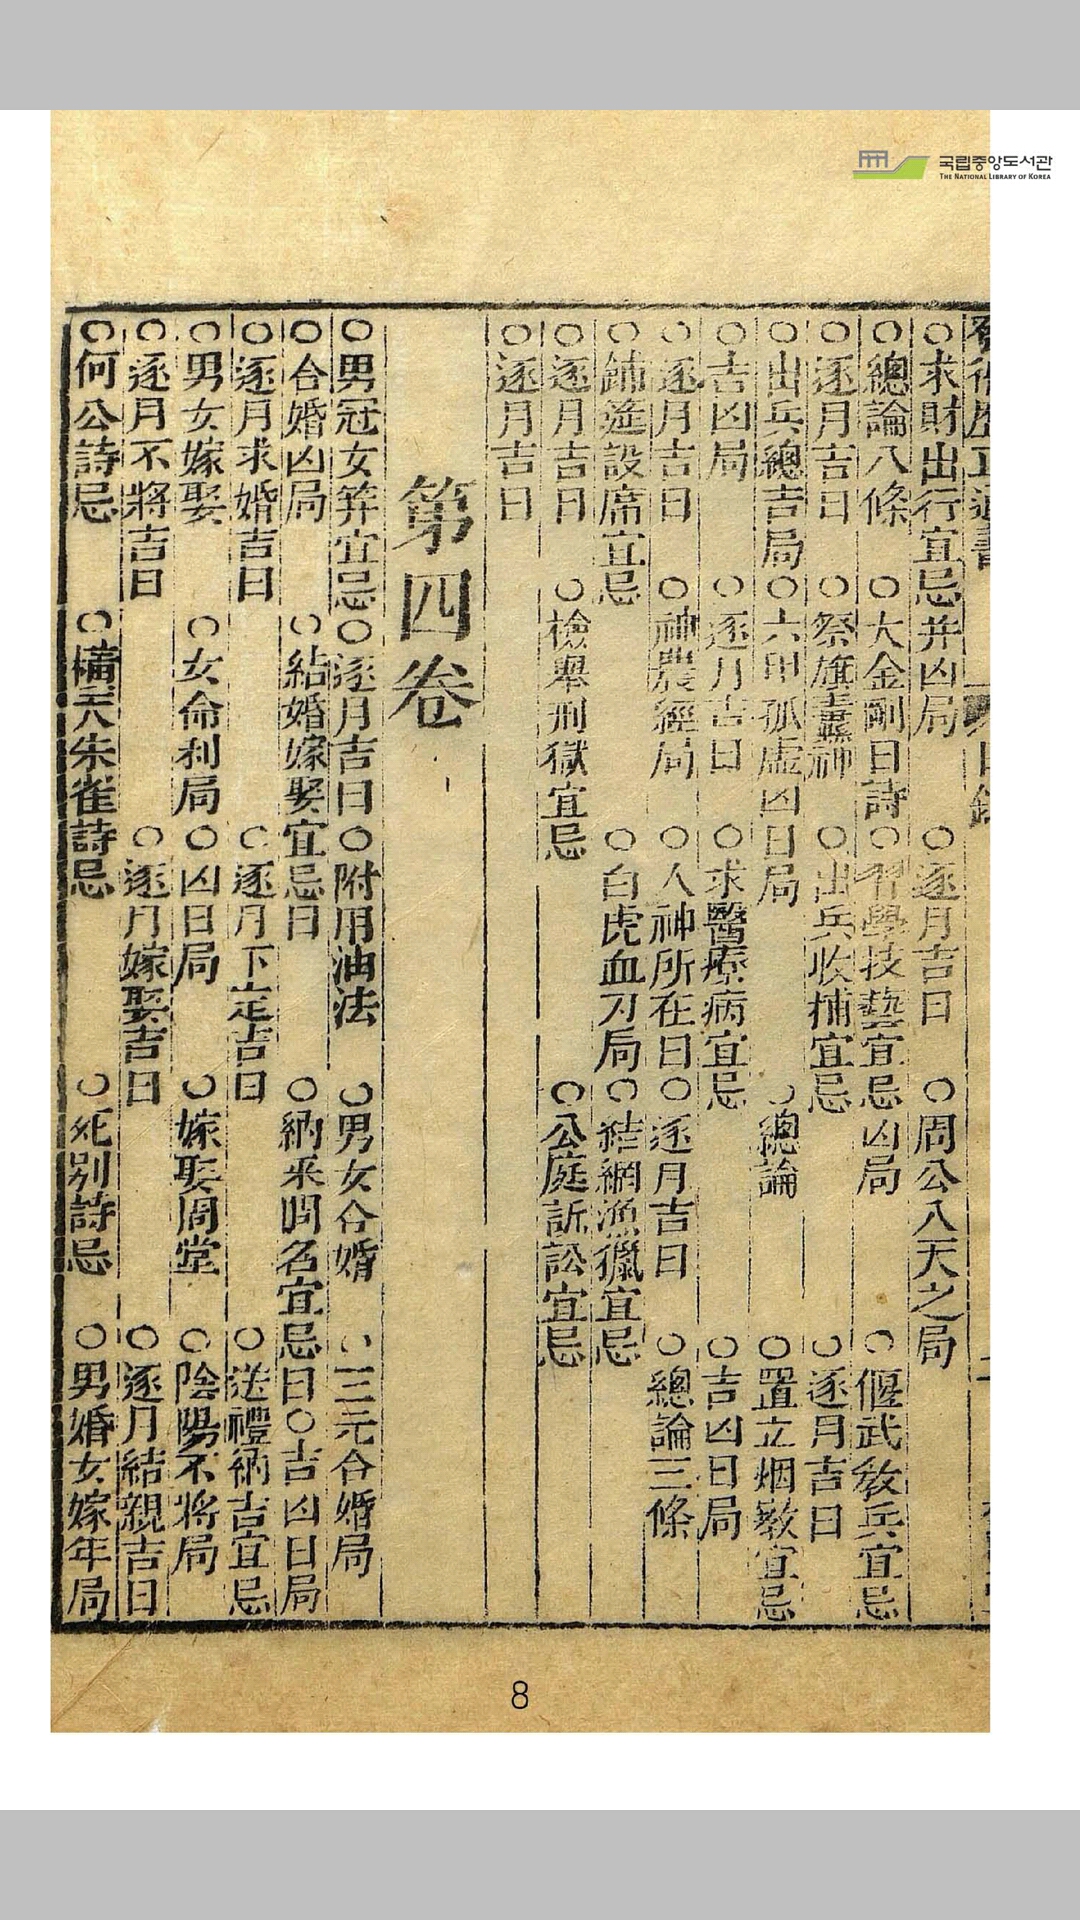 국립중앙도서관
THE NATIONAL LIBRARY OF KOREA
○求財出行宜忌并凶局 ○逐月吉日 ○周公八天之局
○總論八條 ○大金剛日詩 ○習學技藝宜忌凶局 ○偃武敎兵宜忌
○逐月吉日 ○祭旗纛神 ○出兵收捕宜忌 ○逐月吉日
○出兵總吉局 ○六甲孤虛凶日局 ○總論 ○置立烟墩宜忌
○吉凶局 ○逐月吉日 ○求醫療病宜忌 ○吉凶日局
○逐月吉日 ○神農經局 ○人神所在日 ○逐月吉日 ○總論三條
○鋪筵設席宜忌 ○白虎血刃局 ○結網漁獵宜忌
○逐月吉日 ○檢舉刑獄宜忌 ○公庭訴訟宜忌
○逐月吉日
第四卷
○男冠女笄宜忌 ○逐月吉日 ○附用油法 ○男女合婚 ○三元合婚局
○合婚凶局 ○結婚嫁娶宜忌日 ○納采問名宜忌日 ○吉凶日局
○逐月求婚吉日 ○逐月下定吉日 ○送禮納吉宜忌
○男女嫁娶 ○女命利局 ○凶日局 ○嫁娶周堂 ○陰陽不將局
○逐月不將吉日 ○逐月嫁娶吉日 ○逐月結親吉日
○何公詩忌 ○橫天朱雀詩忌 ○死別詩忌 ○男婚女嫁年局
8